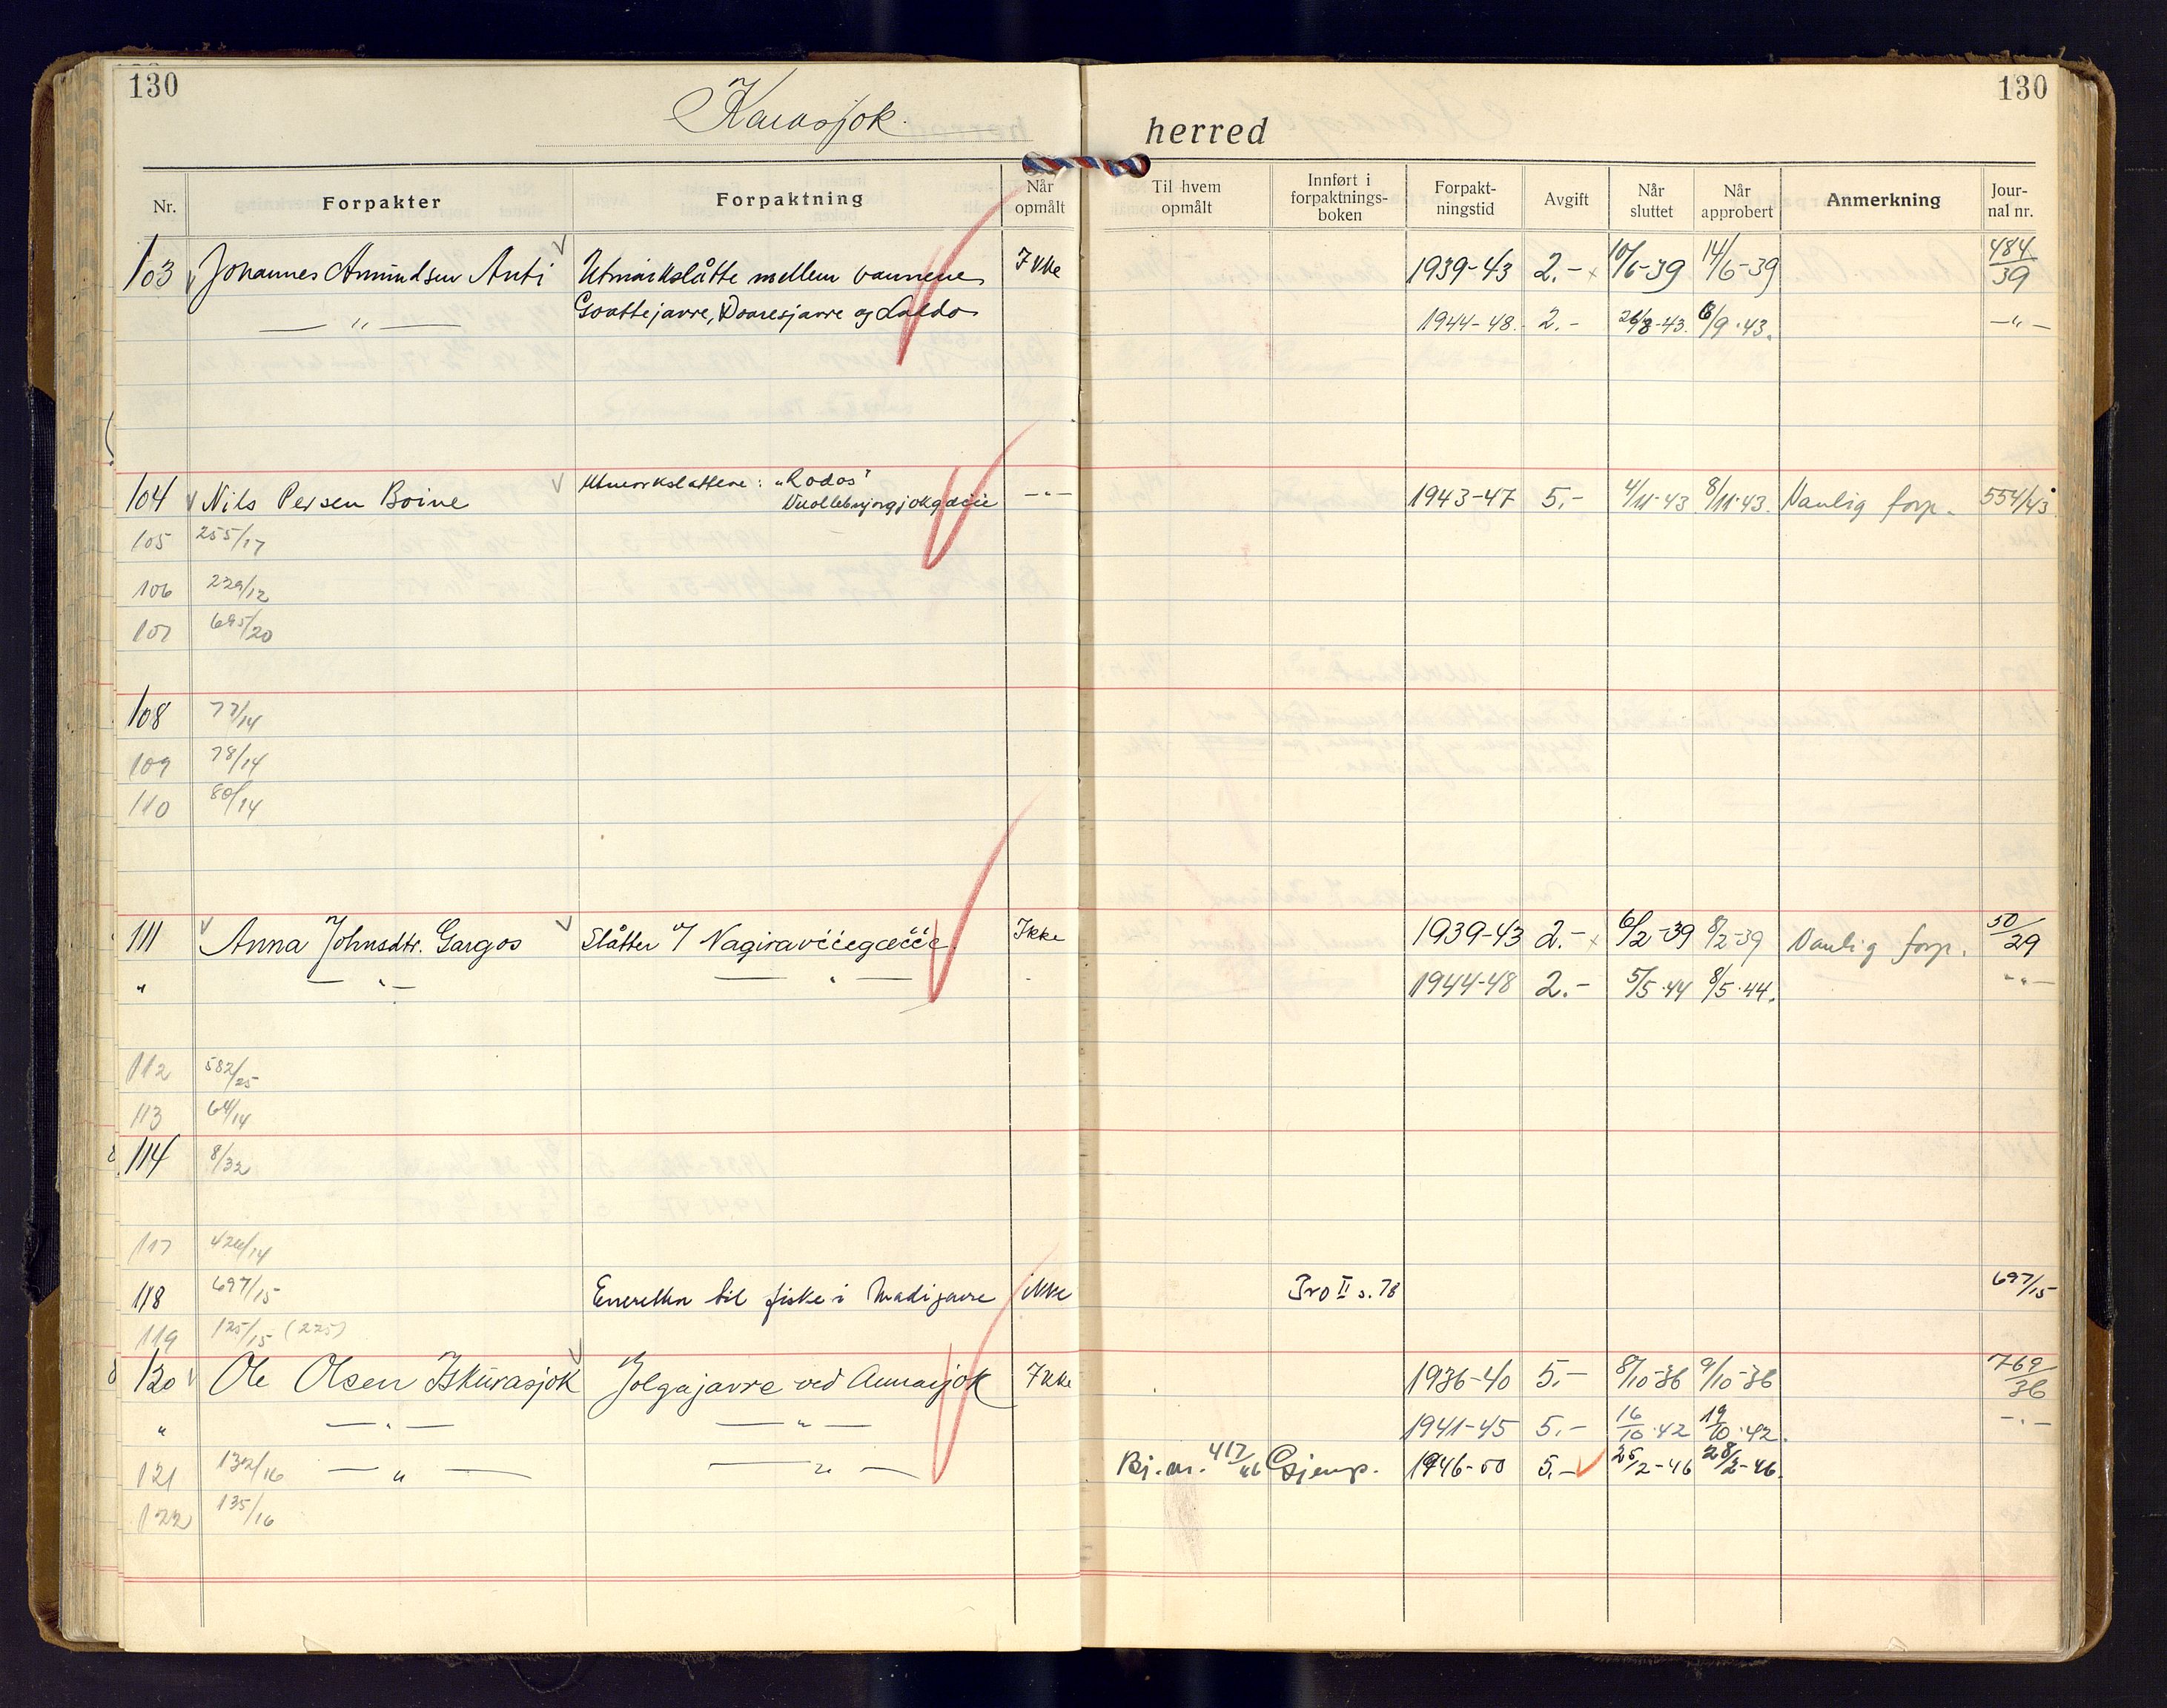 130
130
Karasjok
herred
Nr. Forpakter Forpaktning Når opmålt Til hvem opmålt Innført i forpaktnings-boken Forpakt-ningstid Avgift Når sluttet Når approbert Anmerkning Jour-nal nr.
103 Johannes Amundsen Anti Utmarkslåtte mellem vannene Ikke 1939-43 2.- 10/6-39 14/6-39 484/39
— " — Goattejavre, Doaresjavre og Laldo 1944-48. 2.- 26/8-43. 6/9.43. —"—
104 Nils Persen Boine Utmarkslåttene: „Rodos" —"— 1943-47 5.- 4/11-43 8/11.43. Vanlig forp. 554/43
105 255/17
106 229/12
107 695/20
108 77/14
109 78/14
110 80/14
111 Anna Johnsdtr. Gargos Slåtter Ikke 1939-43 2.- 6/2-39 8/2-39 Vanlig forp. 50/29
" — " — — " — 1944-48 2.- 5/5.44 8/5.44. —"—
112 582/25
113 64/14
114 8/32
117 424/14
118 697/15 Eneretten til fiske i Madijavre ikke Pro II s. 78 697/15
119 125/15 (225)
120 Ole Olsen Iskurasjok Jolgajavre ved Annarjok Ikke 1936-40 5.- 8/10-36 9/10-36 769/36
" — " — — " — 1941-45 5.- 16/10.42 19/10.42. —"—
121 132/16 — " — — " — Bj. nr. 417/46 Gjenp. 1946-50 5.- 25/2-46 28/2-46.
122 135/16